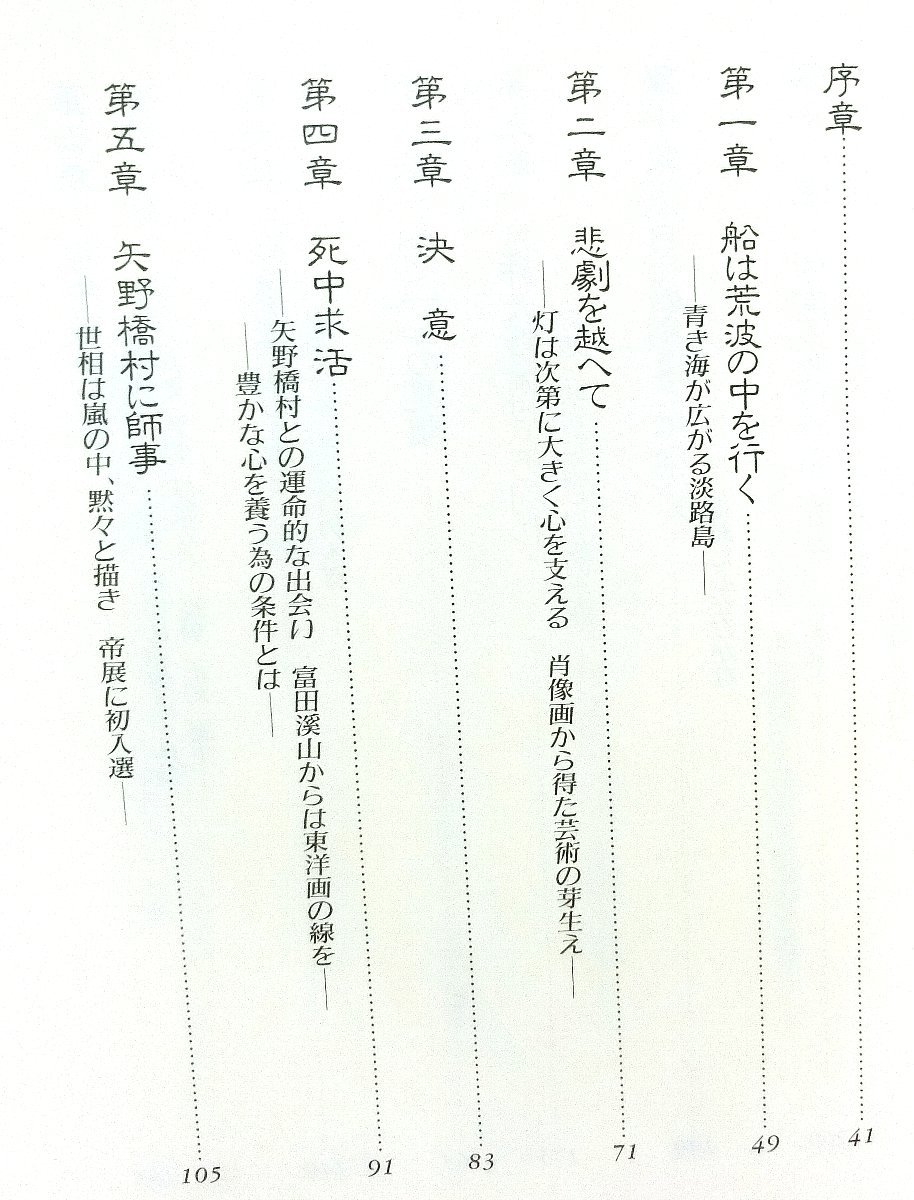 序章……41
第一章　船は荒波の中を行く……49
――青き海が広がる淡路島――
第二章　悲劇を越へて……71
――灯は次第に大きく心を支える　肖像画から得た芸術の芽生え――
第三章　決　意……83
第四章　死中求活……91
――矢野橋村との運命的な出会い　富田溪山からは東洋画の線を――
――豊かな心を養う為の条件とは――
第五章　矢野橋村に師事……105
――世相は嵐の中、黙々と描き　帝展に初入選――